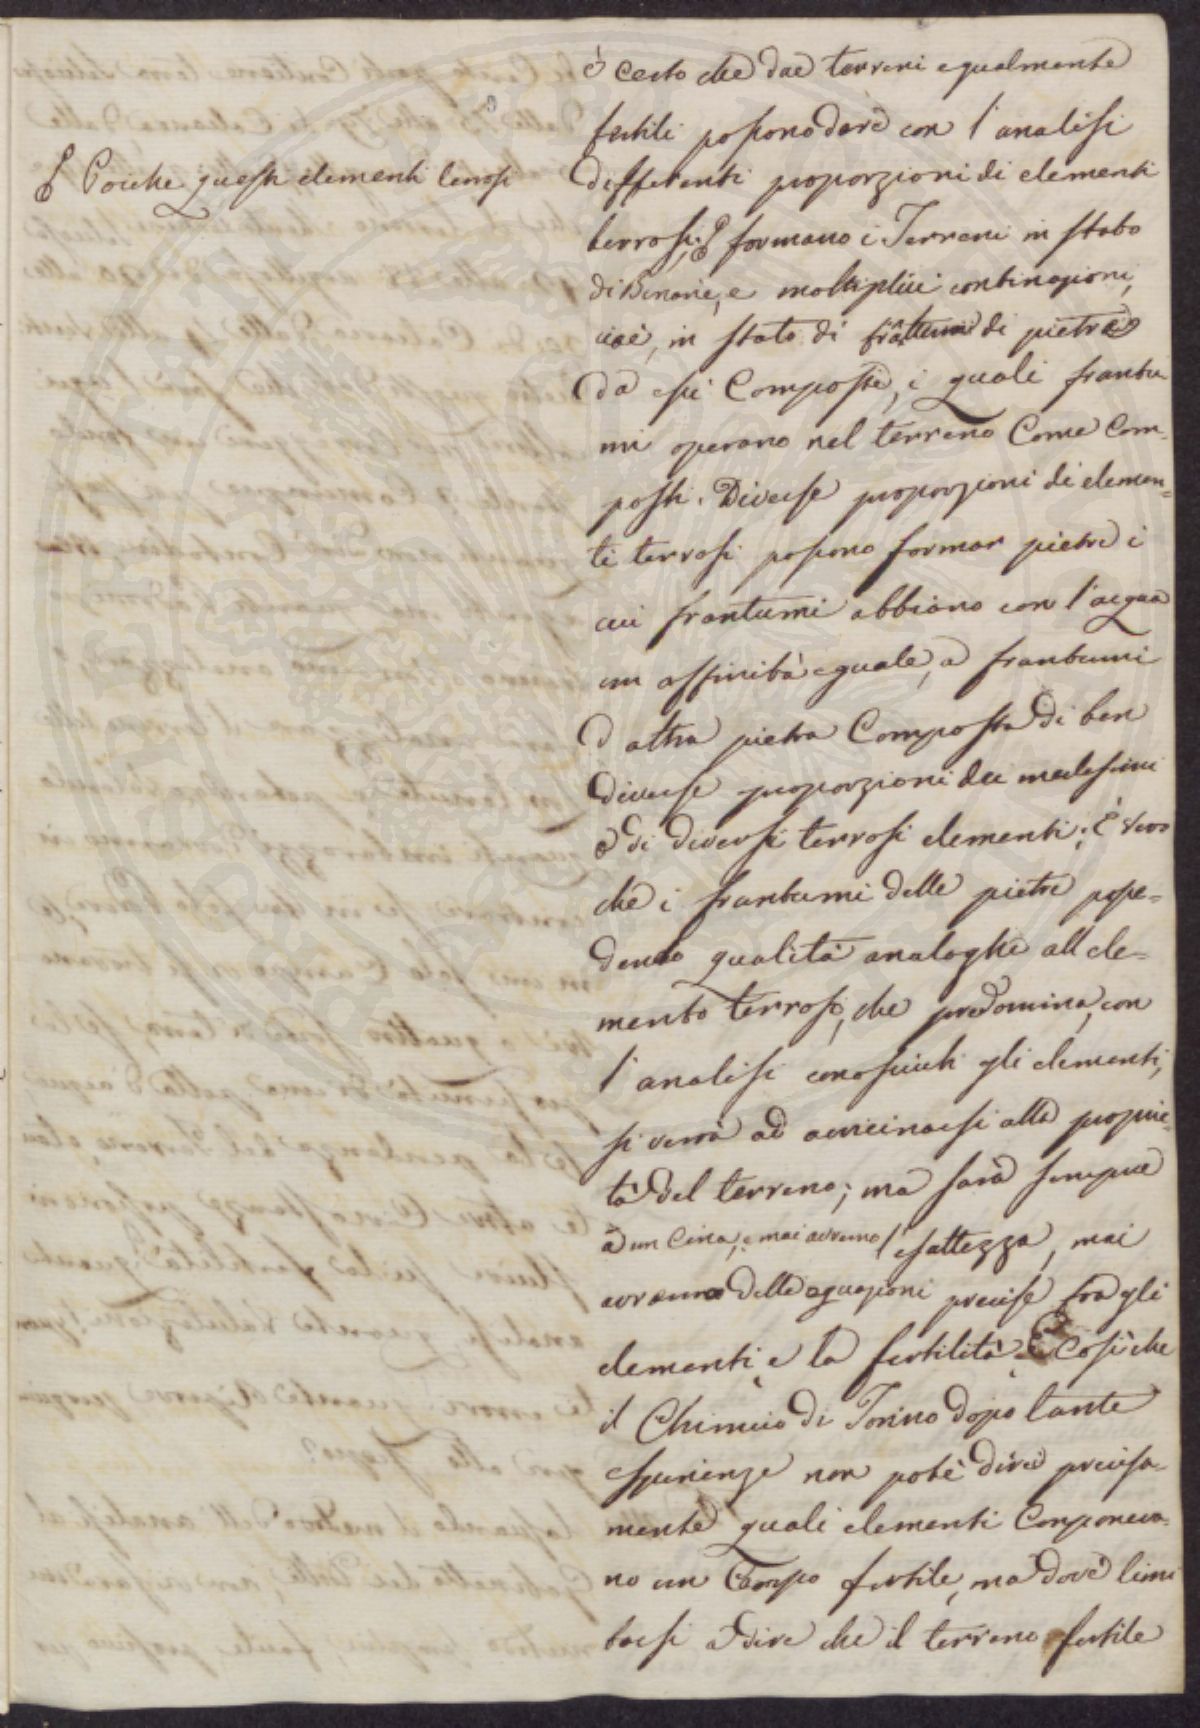 è certo che due terreni egualmente
fertili possono dare con l'analisi
₰ Poiche questi elementi terrosi
differenti proporzioni di elementi
terrosi; ₰ formano i Terreni in stato
di Binarie, e moltiplici combinazioni,
cioè, in stato di frattumi di pietre
da essi Composte, i quali frantu-
mi operano nel terreno Come Com-
posti. Diverse proporzioni di elemen-
ti terrosi possono formar pietre i
cui frantumi abbiano con l'acqua
un affinità eguale, a frantumi
d altra pietra Composta di ben
diverse proporzioni dei medesimi
o di diversi terrosi elementi; È vero
che i frantumi delle pietre posse-
dendo qualità analoghe all ele-
mento terroso, che predomina, con
l'analisi conosciuti gli elementi,
si verrà ad avvicinarsi alla proprie-
tà del terreno; ma sarà sempre
a un Circa, e mai avremo l'esattezza, mai
avremo delle equazioni precise fra gli
elementi, e la fertilità. Così che
il Chimico di Torino dopo tante
esperienze non potè dire precisa-
mente quali elementi Componeva-
no un Campo fertile, ma dovè limi
tarsi a dire che il terreno fertile